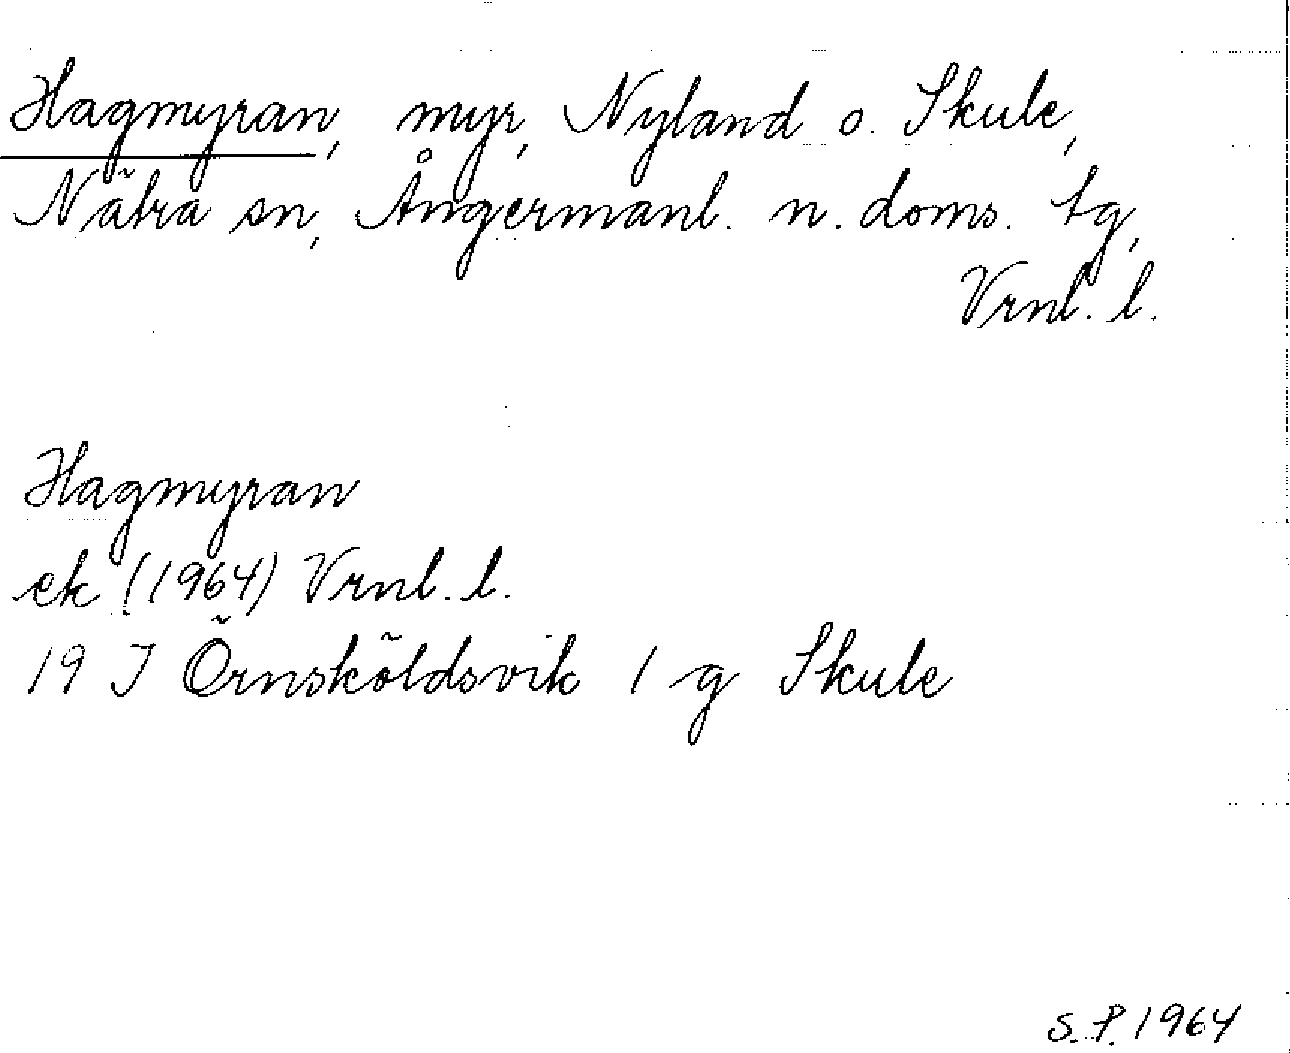 Hagmyran, myr, Nyland o. Skule,
Nätra sn, Ångermanl. n. doms. tg,
Vrnl. l.
Hagmyran
ek (1964) Vrnl. l.
19 J Örnsköldsvik 1 g Skule
S. P. 1964